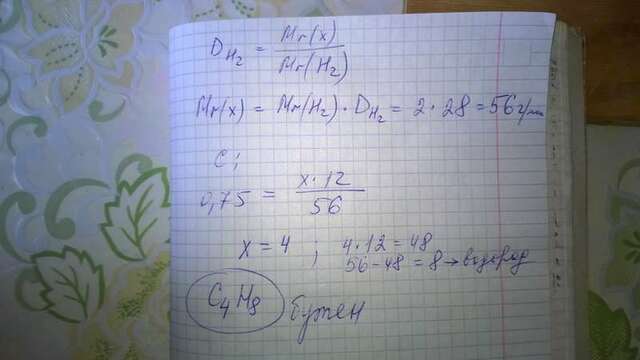 D_H₂ = Mr(x) / Mr(H₂)
Mr(x) = Mr(H₂) · D_H₂ = 2 · 28 = 56 г/моль
C;
0,75 = x·12 / 56
x = 4 ; 4·12 = 48
56 - 48 = 8 → водород
C₄H₈ бутен